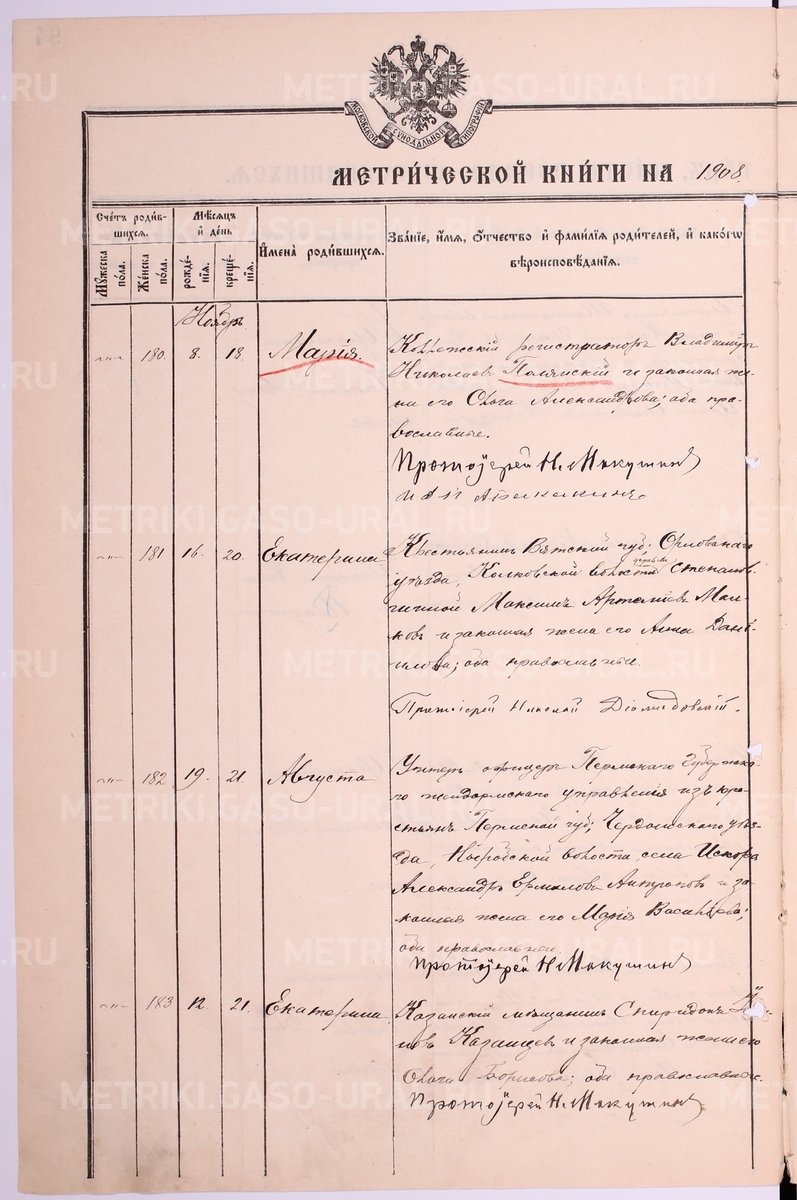 МОСКОВСКОЙ СѴНОДАЛЬНОЙ ТИПОГРАФІИ
МЕТРИ́ЧЕСКОЙ КНИ́ГИ НА 1908.
Счетъ роди́в-
шихсѧ.
Мѣсяцъ
и҆ де́нь
Мꙋжеска
по́ла.
Же́нска
по́ла.
рожде́-
нїѧ.
креще́-
нїѧ.
И҆мена̀ роди́вшихсѧ.
Зва́нїе, и҆́мѧ, ѻ҆́тчество и҆ фами́лїѧ роди́телей, и҆ како́гѡ
вѣроисповѣ́данїѧ.
Ноябрь
-"- 180. 8. 18. Марія.
Коллежскій регистраторъ Владиміръ
Николаевъ Полянскій и законная же-
на его Ольга Александрова; оба пра-
вославные.
Протоіерей Н. Микушинъ
-"- 181 16. 20. Екатерина
Крестьянинъ Вятской губ; Орловскаго
уѣзда, волости деревни
Максимъ
и законная жена его Анна Дані-
илова; оба православные.
Протоіерей Николай Діомидовскій.
-"- 182 19. 21. Августа
Унтеръ офицеръ Пермскаго Губернска-
го жандармскаго управленія изъ кре-
стьянъ Пермской губ; Чердынскаго уѣз-
да, Ныробской волости, села Искора
Александръ Ермиловъ Антроповъ и за-
конная жена его Марія Васильева;
оба православные
Протоіерей Н. Микушинъ
-"- 183 12. 21. Екатерина
Казанскій мѣщанинъ Спиридонъ
Казанцев и законная жена его
Ольга Борисова; оба православные.
Протоіерей Н. Микушинъ
METRIKI.GASO-URAL.RU